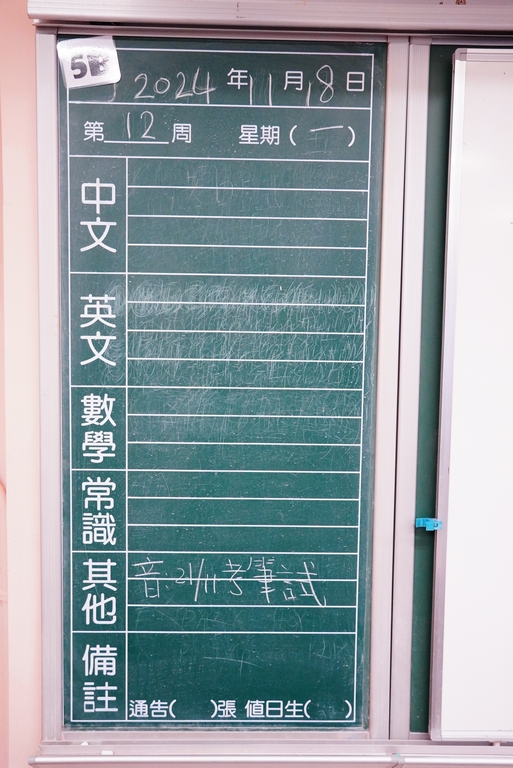 5B
2024年11月18日
第12周 星期(一)
中文
英文
數學
常識
其他 音:21/11考筆試
備註
通告( )張 值日生( )